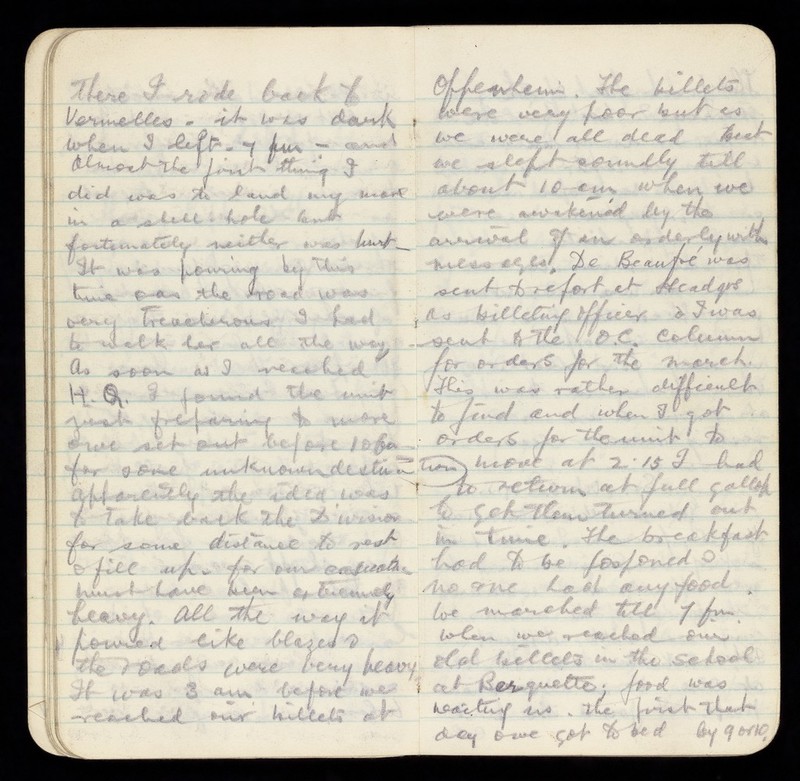 there I rode back to
Vermelles - it was dark
when I left - 7 pm - and
almost the first thing I
did was to land my mare
in a shell hole but
fortunately neither was hurt -
It was pouring by this
time & as the road was
very treacherous I had
to walk her all the way
As soon as I reached
H.Q. I found the unit
just preparing to move
& we set out before 10 pm
for some unknown destina
apparently the idea was
to take back the Division
for some distance to rest
& fill up. for our casualties
must have been extremely
heavy. All the way it
poured like blazes &
the roads were very heavy
It was 3 am before we
reached our billets at
The billets
were very poor but as
we were all dead beat
we slept soundly till
about 10 am when we
were awakened by the
arrival of an orderly with
messages. De Beaupré was
sent to report at Headqrs
as billeting officer & I was
sent to the O.C. Column
for orders for the march.
This was rather difficult
to find and when I got
orders for the unit to
tion move at 2.15 I had
to return at full gallop
to get them turned out
in time. The breakfast
had to be posponed &
no one had any food.
We marched till 7 pm.
when we reached our
old billets in the school
at Berguette; food was
waiting us. the first that
day & we got to bed by 9 or 10.